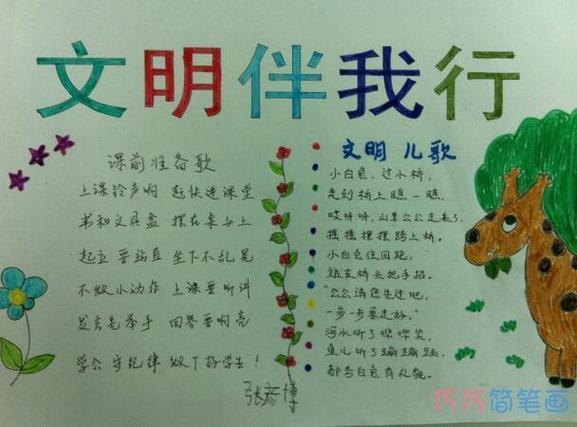 文明伴我行
课前准备歌
上课铃声响 赶快进课堂
书和文具盒 摆在桌与上
起立要站直 坐下不乱晃
不做小动作 上课要听讲
发言先举手 回答要响亮
学会守纪律 做个好学生！
张彦博
文明儿歌
小白兔，过小桥，
走到桥上瞧一瞧，
哎呀呀，山羊公公走来了，
摇摇摆摆踏上桥。
小白兔往回跑，
站在桥头把手招，
“公公请您先过吧，
一步一步要走好。”
河水听了哗哗笑，
鱼儿听了蹦蹦跳，
都夸白兔有礼貌。
巧巧简笔画